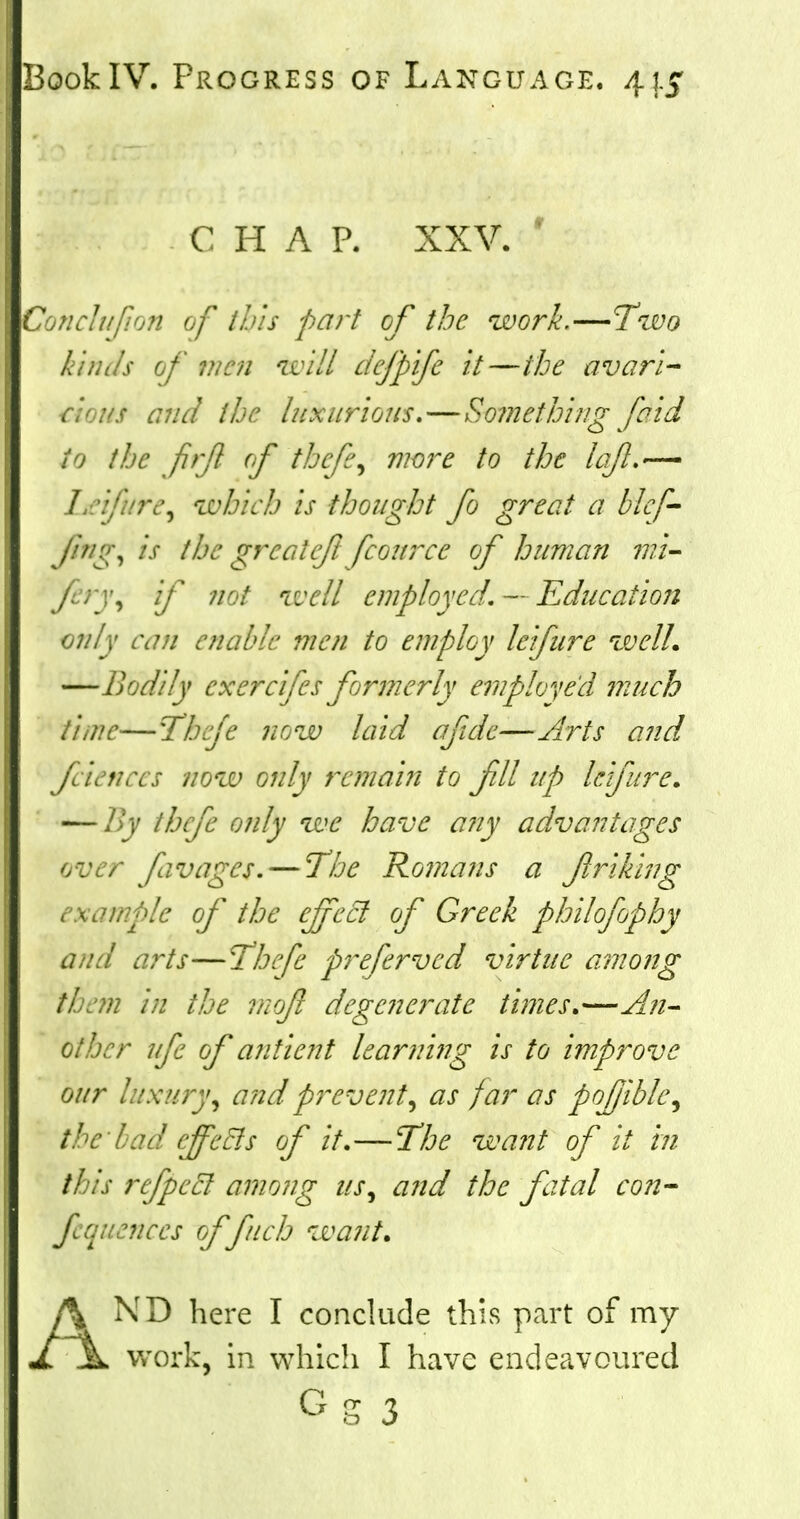 Book IV. PROGRESS OF LANGUAGE. 415
CHAP. XXV.
Concluſion of this part of the work.—Two
kinds of men will deſpiſe it—the avari-
cious and the luxurious.—Something ſaid
to the firſt of theſe, more to the laſt.—
Leiſure, which is thought ſo great a bleſ-
ſing, is the greateſt ſcource of human mi-
ſery, if not well employed.—Education
only can enable men to employ leiſure well.
—Bodily exerciſes formerly employe'd much
time—Theſe now laid aſide—Arts and
ſciences now only remain to fill up leiſure.
—By theſe only we have any advantages
over ſavages.—The Romans a ſtriking
example of the effect of Greek philoſophy
and arts—Theſe preſerved virtue among
them in the moſt degenerate times.—An-
other uſe of antient learning is to improve
our luxury, and prevent, as far as poſſible,
the bad effects of it.—The want of it in
this reſpect among us, and the fatal con-
ſequences of ſuch want.
AND here I conclude this part of my
work, in which I have endeavoured
G g 3